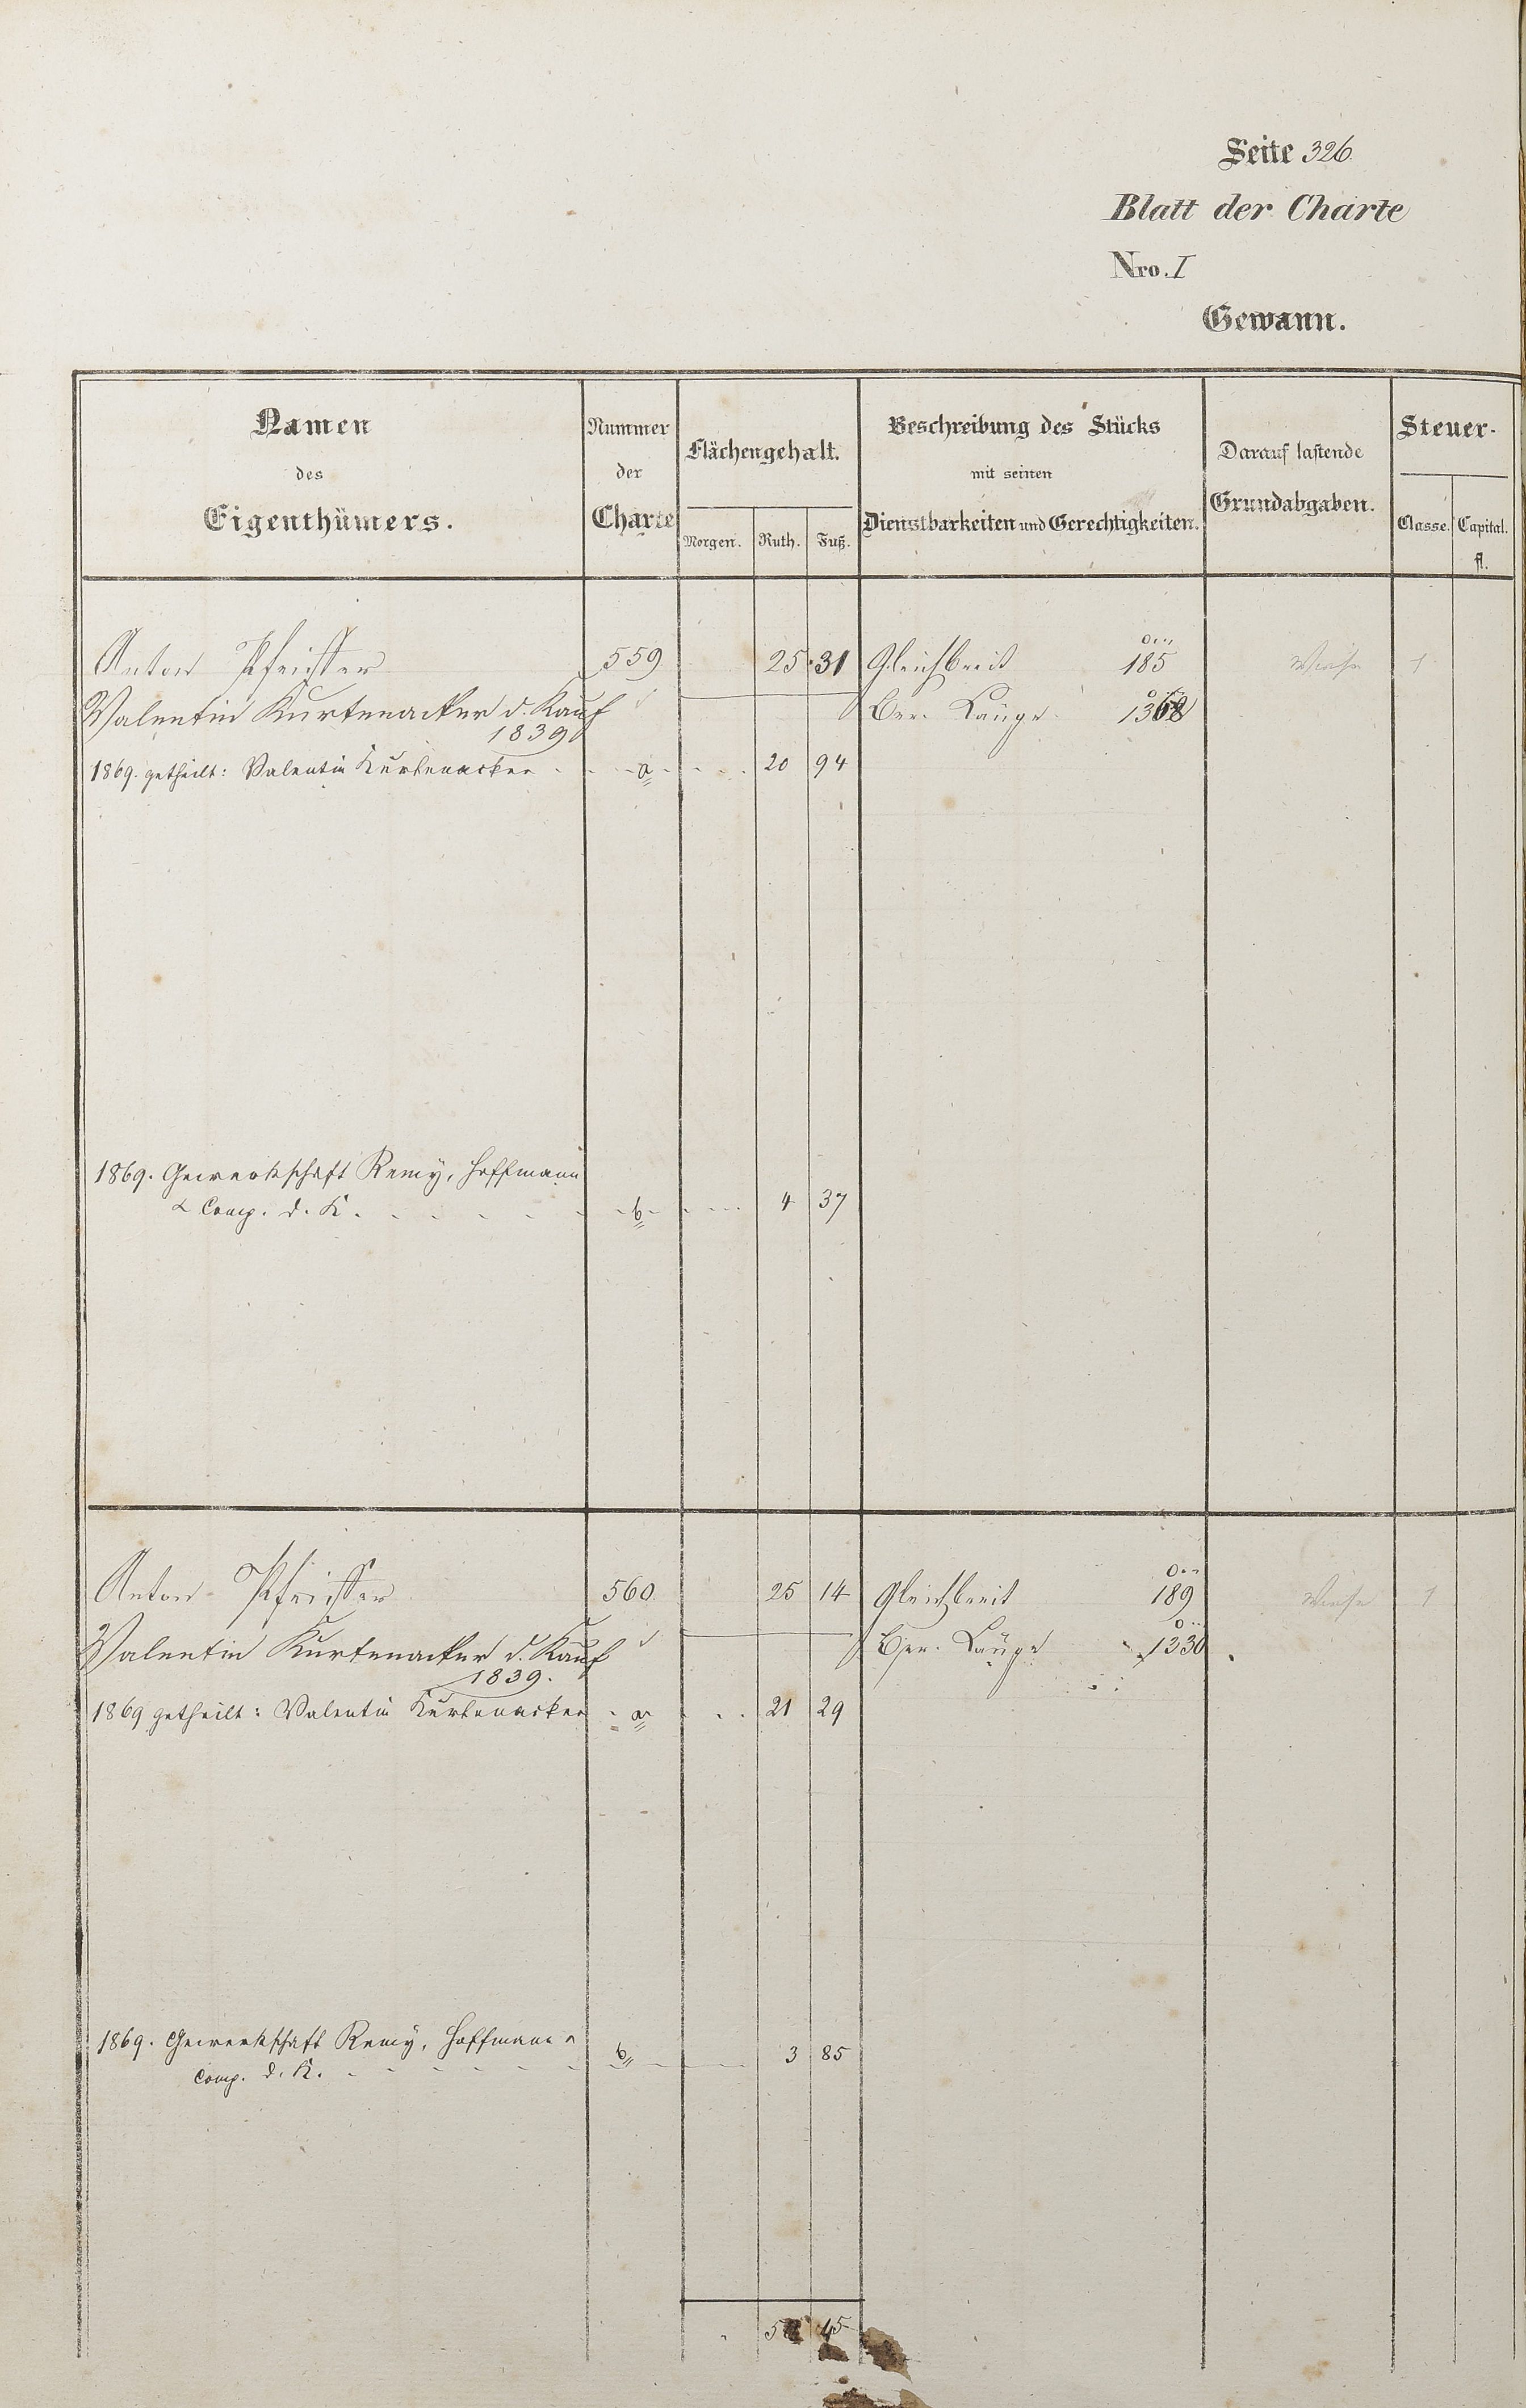 Seite 326
Blatt der Charte
Nro. I
Gewann.
Namen des Eigenthümers.
Nummer der Charte
Flächengehalt.
Morgen. Ruth. Fuß.
Beschreibung des Stücks mit seinen Dienstbarkeiten und Gerechtigkeiten.
Darauf lastende Grundabgaben.
Steuer-
Classe. Capital. fl.
Anton Pfeiffer 559 25 31 Gleichbreit 185 Wiese 1
Valentin Kurtenacker d. Kauf Ber. Länge 1368
1839
1869. getheilt: Valentin Kurtenacker a 20 94
1869. Gewerkschaft Remy, Hoffmann
& Comp. d. K. b 4 37
Anton Pfeiffer 560 25 14 Gleichbreit 189 Wiese 1
Valentin Kurtenacker d. Kauf Ber. Länge 1330
1839.
1869 getheilt: Valentin Kurtenacker a 21 29
1869. Gewerkschaft Remy, Hoffmann &
Comp. d. K. b 3 85
45